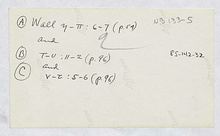 NB-133-5
Ⓐ Wall γ-π: 6-7 (p.59)
and
Ⓑ T-U: 11-Z (p.96) PS-142-32
and
Ⓒ V-Z: 5-6 (p.96)